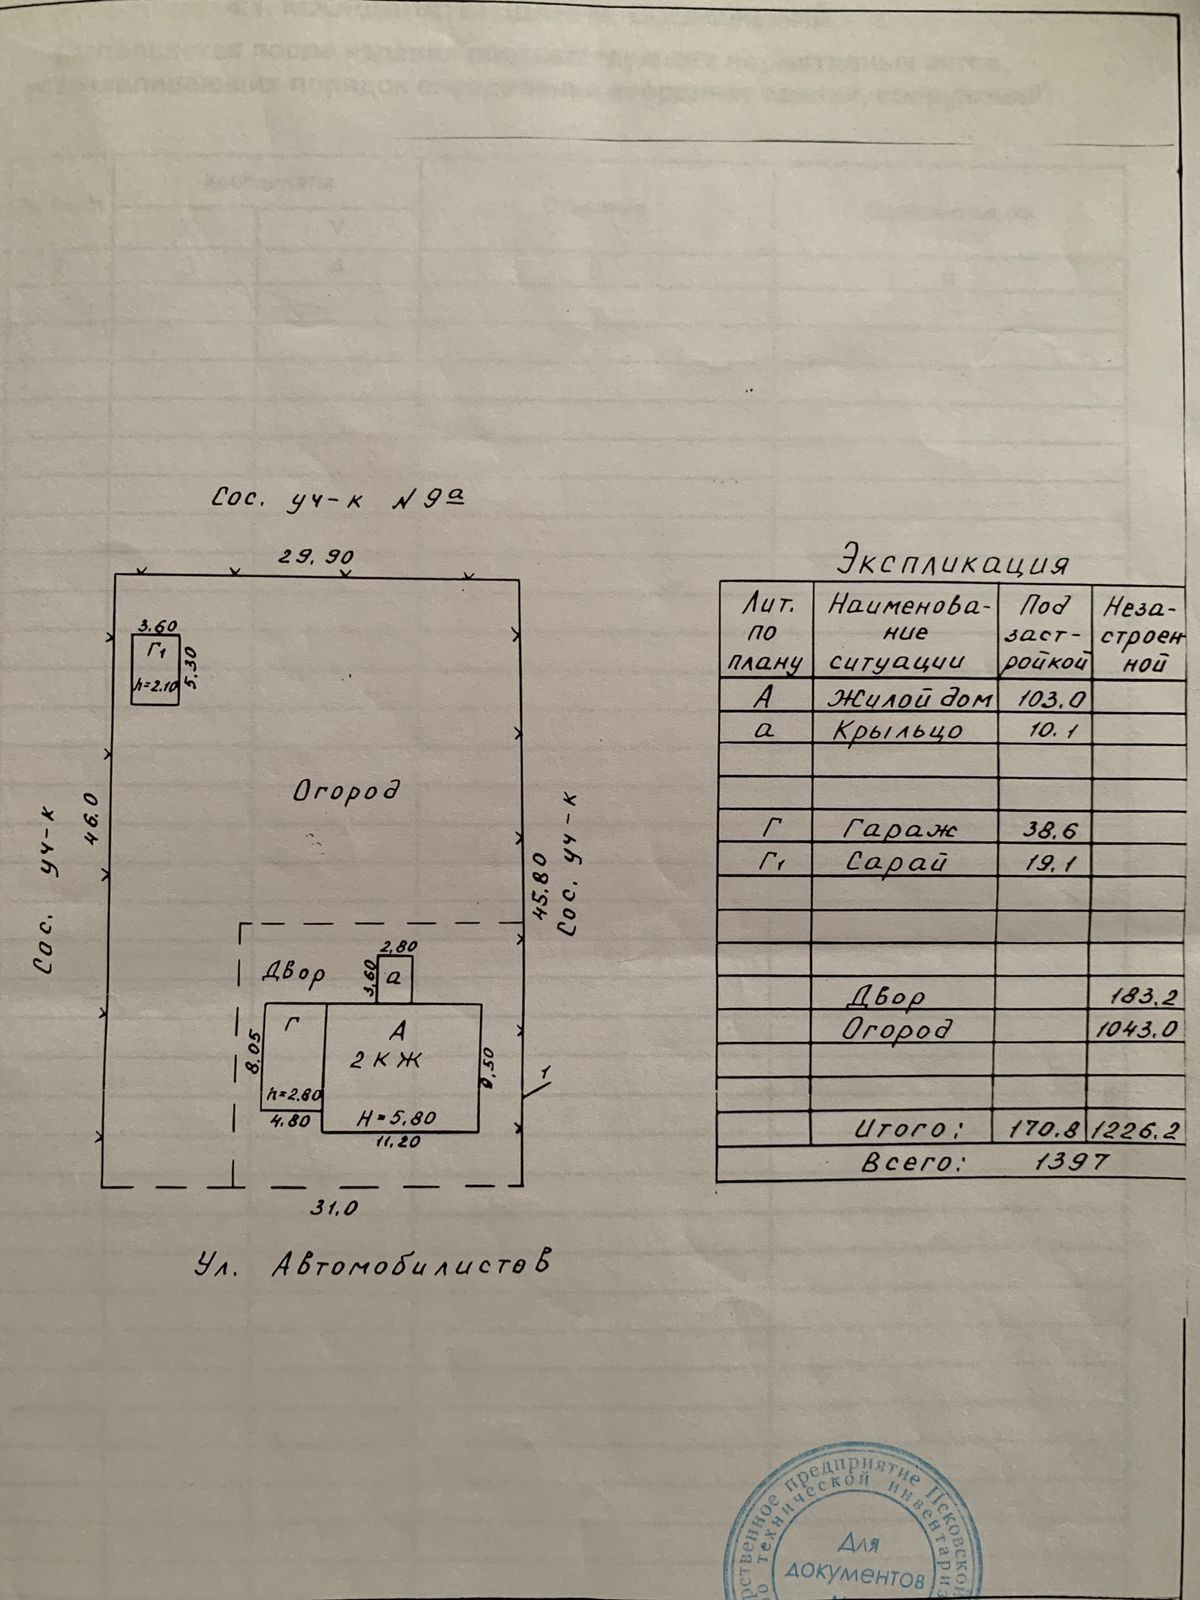 Сос. уч-к N 9а
29,90
3.60
Г1
5,30
h=2.10
Сос. уч-к
46.0
Огород
45.80
Сос. уч-к
Двор
2,80
3,60
а
Г
А
2 К Ж
8.05
h=2.80
4.80
Н=5,80
11,20
,50
1
31.0
Ул. Автомобилистов
Экспликация
Лит. по плану Наименова- ние ситуации Под заст- ройкой Неза- строен ной
А Жилой дом 103.0
а Крыльцо 10.1
Г Гараж 38.6
Г1 Сарай 19.1
Двор 183.2
Огород 1043.0
Итого: 170.8 1226.2
Всего: 1397
предприятие Псковской
технической инвентариз
Для
документов